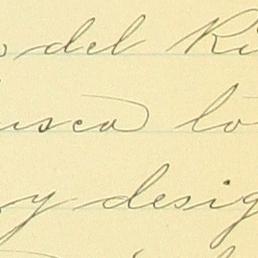 del Ri
usca lo
y desig